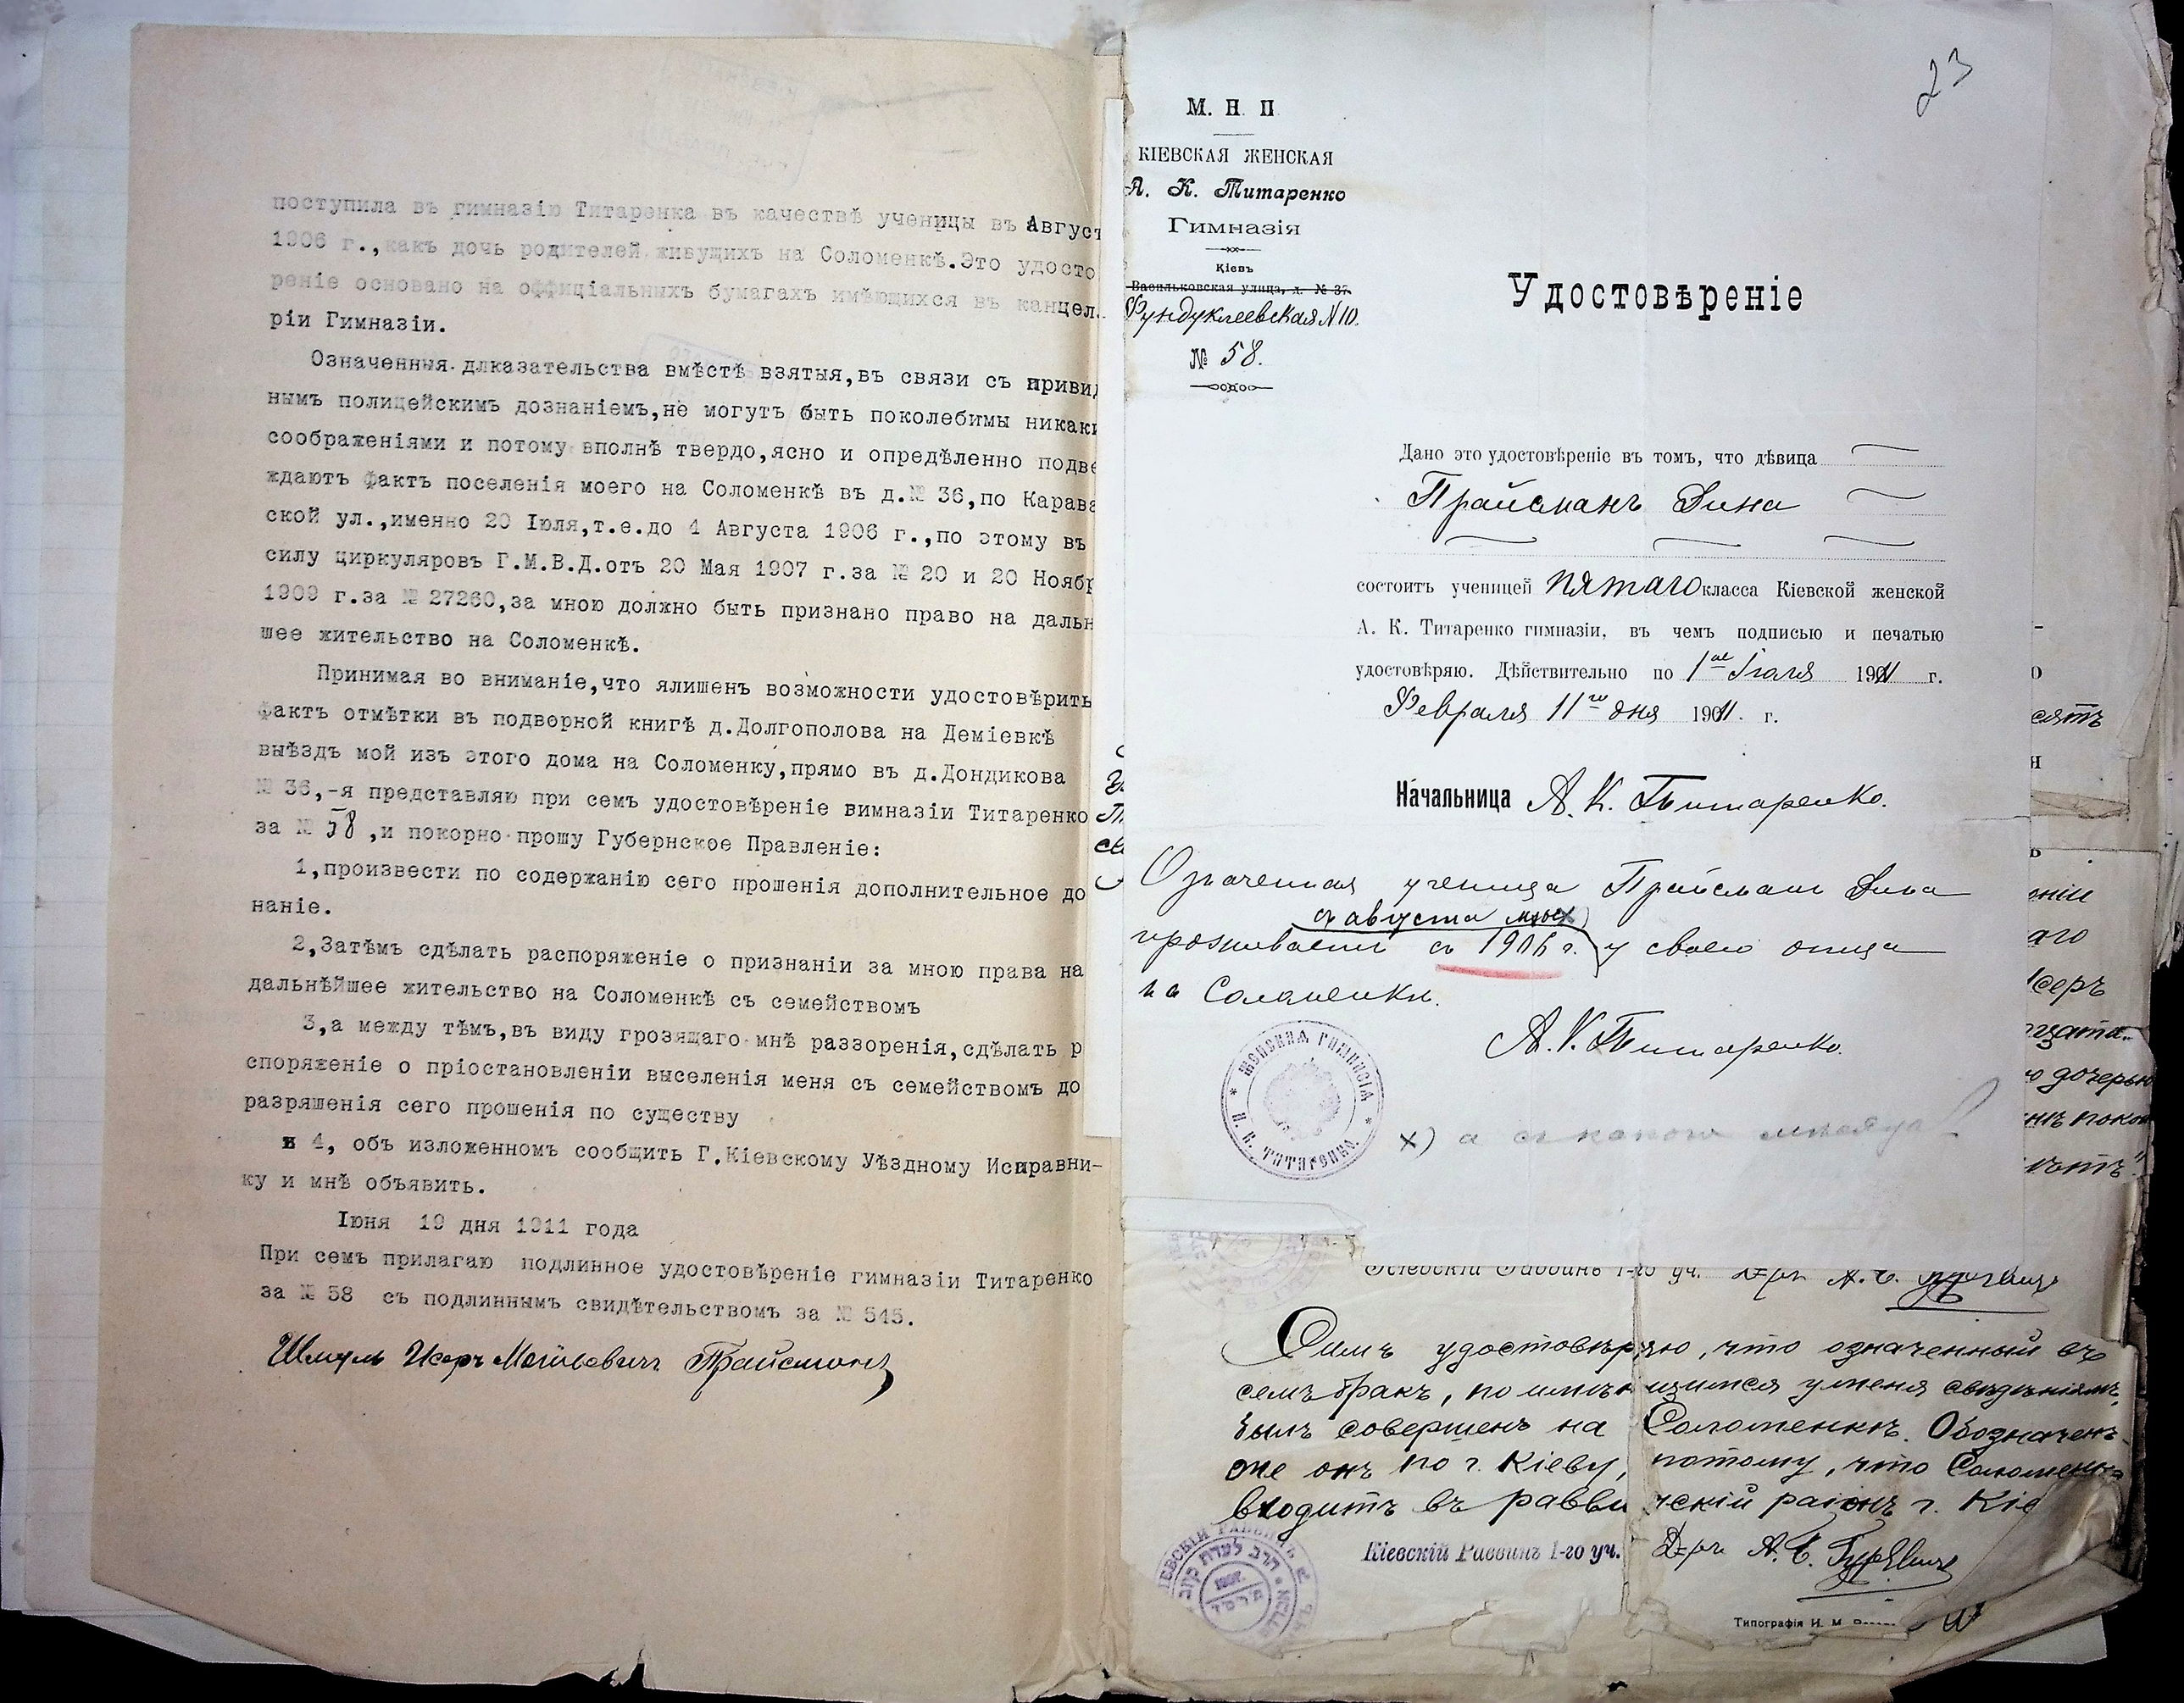 поступила въ гимназію Титаренка въ качествѣ ученицы въ Август
1906 г.,какъ дочь родителей живущихъ на Соломенкѣ.Это удосто
реніе основано на оффиціальныхъ бумагахъ имѣющихся въ канцел
ріи Гимназіи.
Означенныя длказательства вмѣстѣ взятыя,въ связи съ привид
нымъ полицейскимъ дознаніемъ,не могутъ быть поколебимы никаки
соображеніями и потому вполнѣ твердо,ясно и опредѣленно подве
ждаютъ фактъ поселенія моего на Соломенкѣ въ д.№ 36,по Карава
ской ул.,именно 20 Іюля,т.е.до 4 Августа 1906 г.,по этому въ
силу циркуляровъ Г.М.В.Д.отъ 20 Мая 1907 г.за № 20 и 20 Ноябр
1909 г.за № 27260,за мною должно быть признано право на дальн
шее жительство на Соломенкѣ.
Принимая во вниманіе,что ялишенъ возможности удостовѣрить
фактъ отмѣтки въ подворной книгѣ д.Долгополова на Деміевкѣ
выѣздъ мой изъ этого дома на Соломенку,прямо въ д.Дондикова
№ 36,-я представляю при семъ удостовѣреніе вимназіи Титаренко
за № 58 ,и покорно прошу Губернское Правленіе:
1,произвести по содержанію сего прошенія дополнительное до
наніе.
2,Затѣмъ сдѣлать распоряженіе о признаніи за мною права на
дальнѣйшее жительство на Соломенкѣ съ семействомъ
3,а между тѣмъ,въ виду грозящаго мнѣ раззоренія,сдѣлать р
споряженіе о пріостановленіи выселенія меня съ семействомъ до
разряшенія сего прошенія по существу
и 4, объ изложенномъ сообщить Г.Кіевскому Уѣздному Исправни-
ку и мнѣ объявить.
Іюня 19 дня 1911 года
При семъ прилагаю подлинное удостовѣреніе гимназіи Титаренко
за № 58 съ подлиннымъ свидѣтельствомъ за № 545.
Шмуль Исеръ Мойшевичъ Прайсманъ
23
М. Н. П
КІЕВСКАЯ ЖЕНСКАЯ
А. К. Титаренко
Гимназія
Кіевъ
Васильковская улица, д. № 37.
Фундуклеевская N 10.
№ 58.
Удостовѣреніе
Дано это удостовѣреніе въ томъ, что дѣвица
Прайсманъ Дина
состоитъ ученицей пятаго класса Кіевской женской
А. К. Титаренко гимназіи, въ чемъ подписью и печатью
удостовѣряю. Дѣйствительно по 1ое Іюля 1911 г.
Февраля 11го дня 1911. г.
Начальница А. К. Титаренко.
Означенная ученица Прайсманъ Дина
съ августа мѣс. х)
проживаетъ съ 1906 г. у своего отца
на Соломенкѣ.
А. К. Титаренко.
ЖЕНСКАЯ ГИМНАЗІЯ * А. К. ТИТАРЕНКО. *
х) а съ какого мѣсяца?
сятъ
еніи
аго
Исеръ
дочерью
Кіевскій Раввинъ 1-го уч. Д-ръ А. Б. Гуревичъ
Симъ удостовѣряю, что означенный въ
семъ бракъ, по имѣющимся у меня свѣдѣніямъ,
былъ совершенъ на Соломенкѣ. Обозначенъ
же онъ по г. Кіеву, потому, что Соломенка
входитъ въ равви ческій раіонъ г. Кіе
Кіевскій Раввинъ 1-го уч. Д-ръ А. Б. Гуревичъ
Типографія И. М.